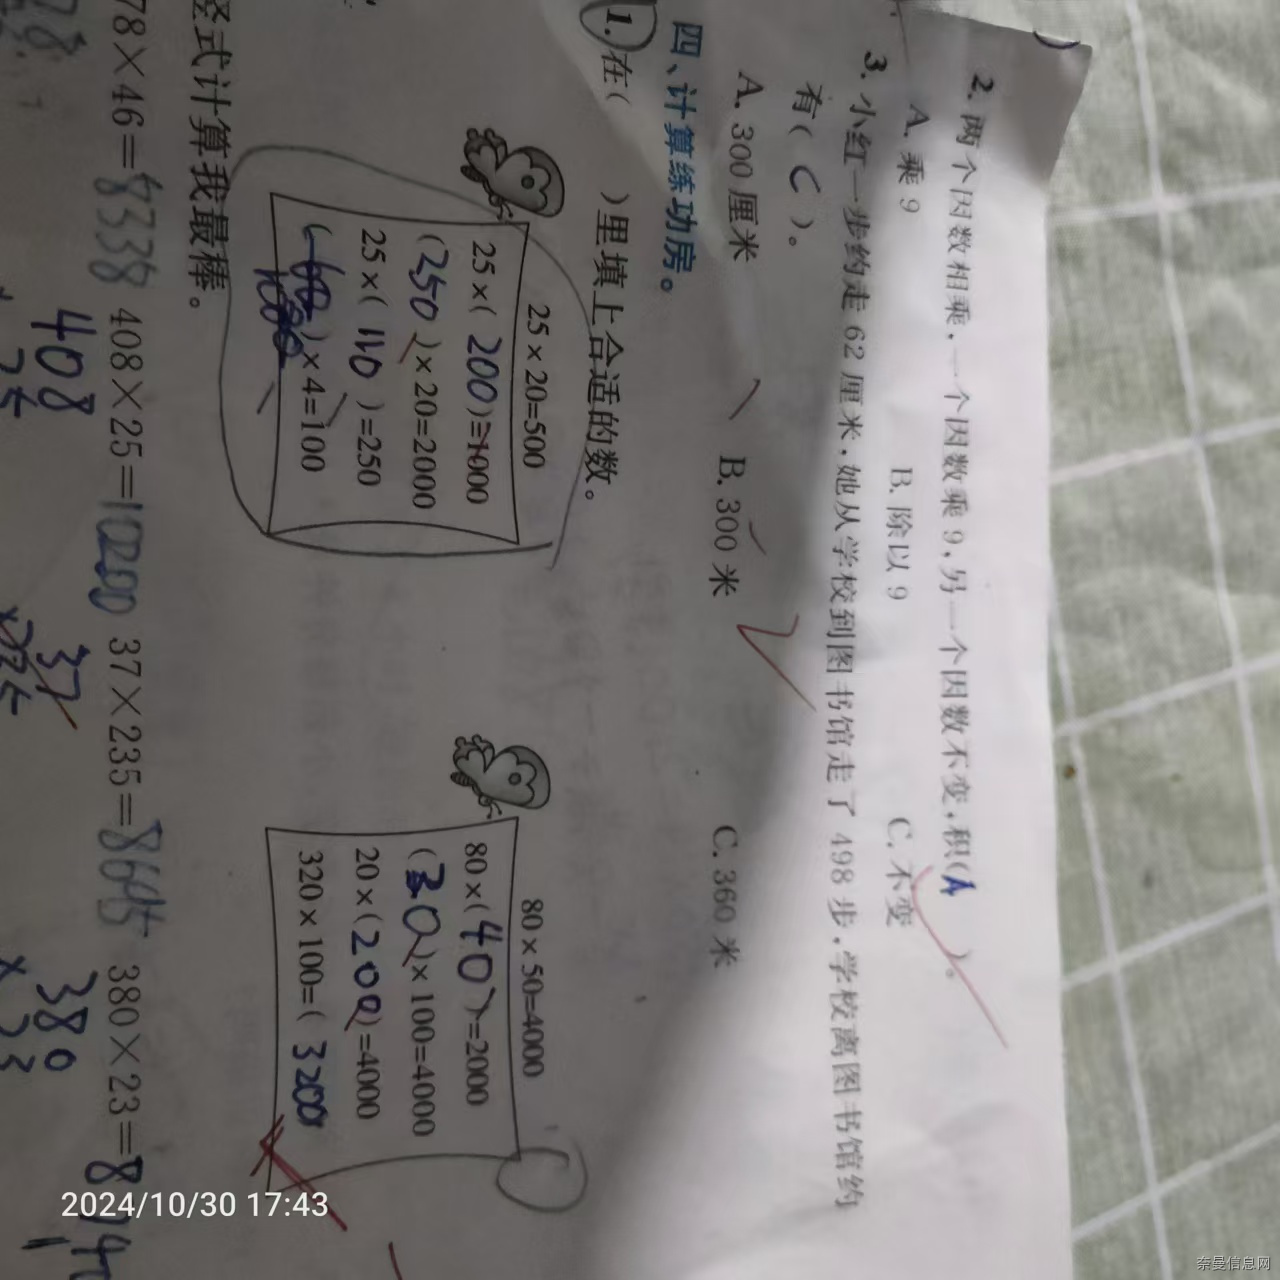 2. 两个因数相乘，一个因数乘 9，另一个因数不变，积（A）。
A. 乘 9 B. 除以 9 C. 不变
3. 小红一步约走 62 厘米，她从学校到图书馆走了 498 步，学校离图书馆约
有（C）。
A. 300 厘米 B. 300 米 C. 360 米
四、计算练功房。
1. 在（ ）里填上合适的数。
25×20=500
25×(200)=1000
(250)×20=2000
25×(110)=250
( )×4=100
80×50=4000
80×(40)=2000
(30)×100=4000
20×(200)=4000
320×100=(3200
竖式计算我最棒。
78×46=8338 408×25=10200 37×235=8645 380×23=8
408
37
380
2024/10/30 17:43
奈曼信息网